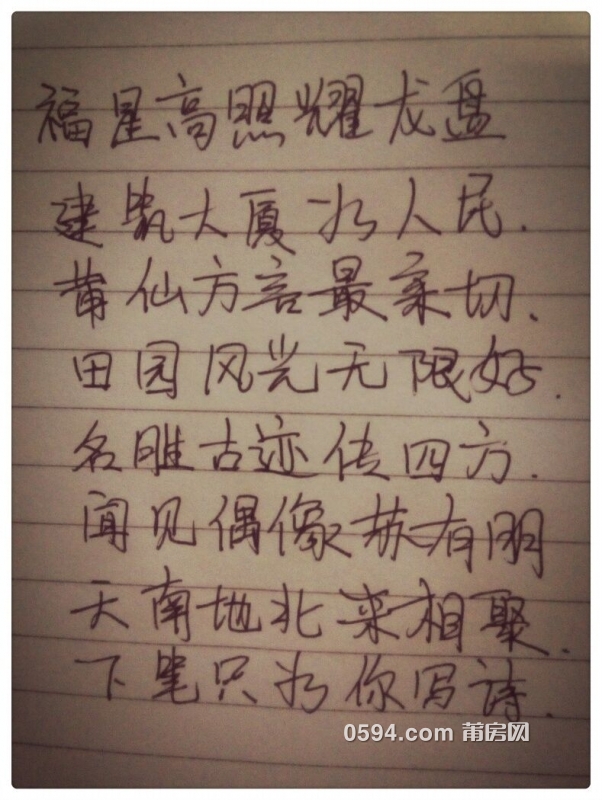 福星高照耀龙盘
建筑大厦为人民.
莆仙方言最亲切、
田园风光无限好.
名胜古迹传四方.
闻见偶像苏有朋
天南地北来相聚.
下笔只为你写诗.
0594.com 莆房网